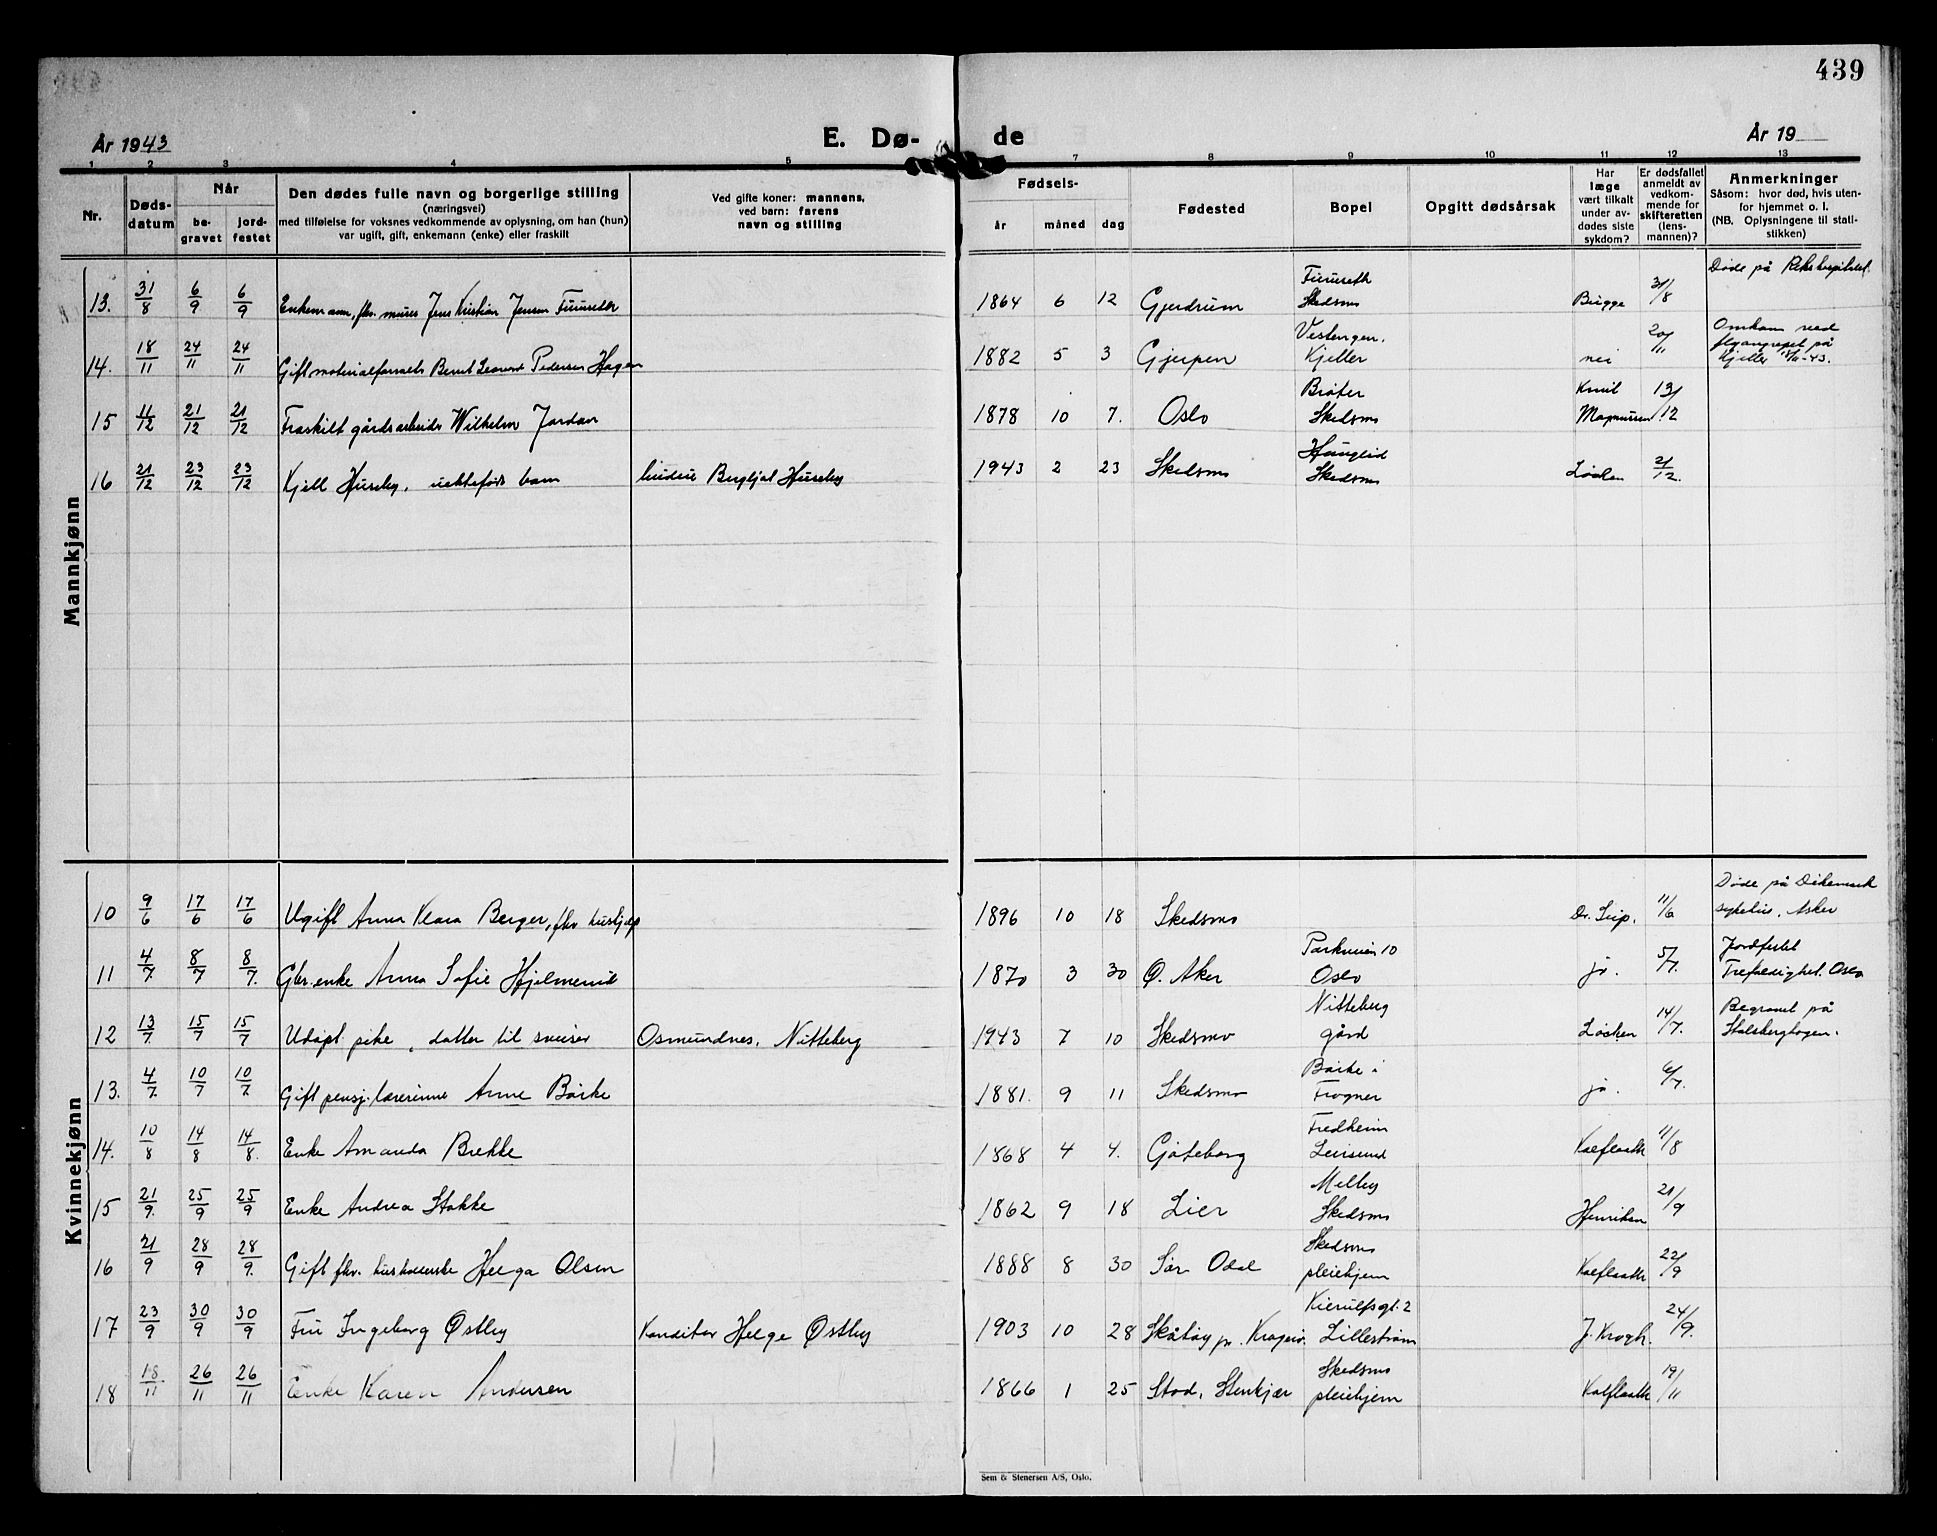 439
År 1943
E. Dø-
de
År 19
1 2 3 4 5 7 8 9 10 11 12 13
Nr.
Døds-
datum
Når
be-
gravet
jord-
festet
Den dødes fulle navn og borgerlige stilling
(næringsvei)
med tilføielse for voksnes vedkommende av oplysning, om han (hun)
var ugift, gift, enkemann (enke) eller fraskilt
Ved gifte koner: mannens,
ved barn: farens
navn og stilling
Fødsels-
år måned dag
Fødested
Bopel
Opgitt dødsårsak
Har
læge
vært tilkalt
under av-
dødes siste
sykdom?
Er dødsfallet
anmeldt av
vedkom-
mende for
skifteretten
(lens-
mannen)?
Anmerkninger
Såsom: hvor død, hvis uten-
for hjemmet o. l.
(NB. Oplysningene til stati-
stikken)
Mannkjønn
13. 31/8 6/9 6/9 Enkemann, fhv. murer Jens Kristian Jensen Furuseth 1864 6 12 Gjerdrum Furuseth Skedsmo Brigge 31/8 Døde på Rikshospitalet.
14. 18/11 24/11 24/11 Gift materialforvalt. Pedersen Hagen 1882 5 3 Gjerpen Vestengen, Kjeller nei 20/11 Omkom ved flyangrepet på Kjeller 18/11-43.
15 11/12 21/12 21/12 Fraskilt gårdsarbeider Wilhelm Jordan 1878 10 7. Oslo Bråter Skedsmo Knut Magnussen 13/12
16 21/12 23/12 23/12 Kjell Huseby, uektefødt barn Bergljot Huseby 1943 2 23 Skedsmo Skedsmo Løchen 21/12.
Kvinnekjønn
10 9/6 17/6 17/6 Ugift Anna Klara Berger, fhv. hushjelp 1896 10 18 Skedsmo Dr. Seip. 11/6 Døde på Dikemark sykehus, Asker
11 4/7. 8/7 8/7. Gbr.enke Anna Sofie Hjelmerud 1870 3 30 Ø. Aker Parkveien 10 Oslo ja. 5/7. Jordfestet Trefoldighet. Oslo
12 13/7 15/7 15/7 Udøpt pike, datter til sveiser Osmundnes, Nitteberg 1943 7 10 Skedsmo Nitteberg gård Løchen 14/7. Begravet på Stalsberghagen.
13. 4/7. 10/7 10/7. Gift pensj. lærerinne Anne Børke 1881. 9 11 Skedsmo Børke i Frogner ja. 6/7.
14. 10/8 14/8 14/8. Enke Amanda Brekke 1868 4 4. Gøteborg Fredheim Leirsund Kalfloath 11/8
15 21/9. 25/9 25/9 Enke Andrea Stokke 1862 9 18 Lier Melby Skedsmo Henriksen 21/9
16 21/9 28/9 28/9. Gift fhv. husholderske Helga Olsen 1888 8 30 Sør Odal Skedsmo pleiehjem Kalfloath 22/9
17 23/9 30/9 30/9 Fru Ingeborg Østby Konditor Helge Østby 1903 10 28 Skåtøy pr. Kragerø. Kierulfsgt. 2 Lillestrøm J. Krogh. 24/9.
18 18/11 26/11 26/11 Enke Karen Andersen 1866 1 25 Stod, Stenkjær Skedsmo pleiehjem Kalfloath 19/11
Sem & Stenersen A/S, Oslo.